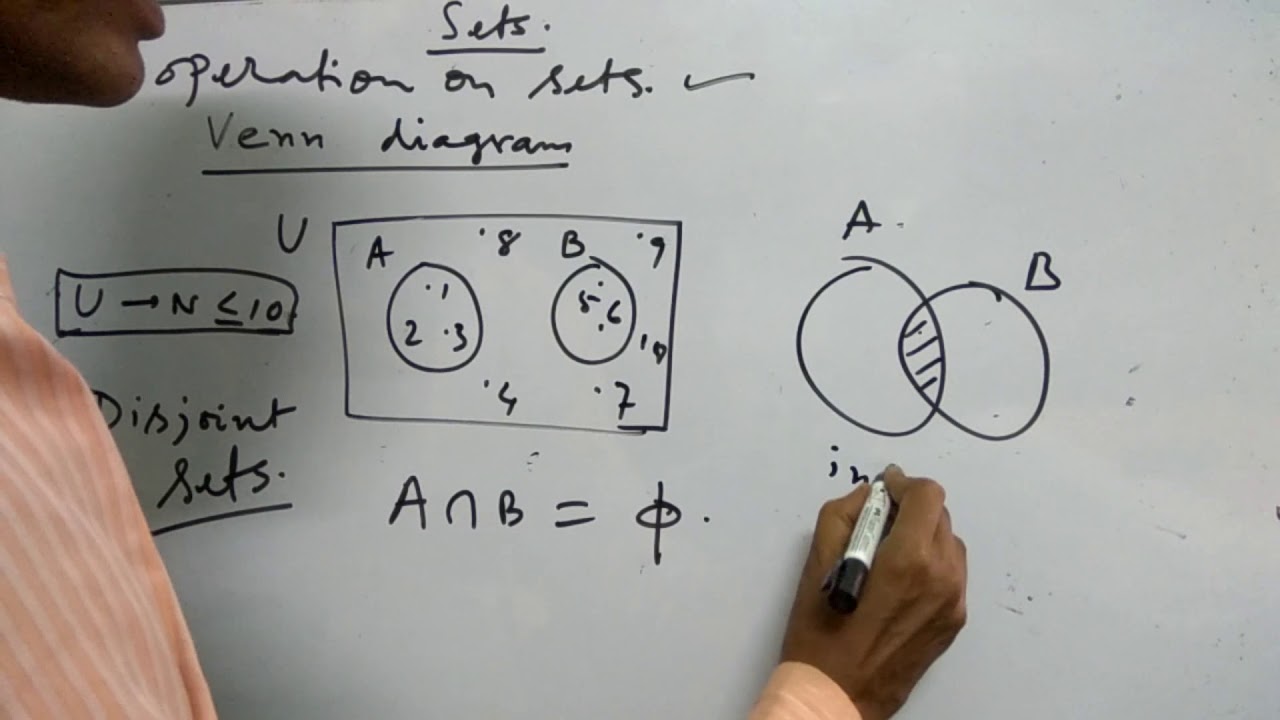 Sets.
operation on sets.
Venn diagram
U
A .8 B .9
U → N ≤ 10
.1
2 .3
5 .6
.10
.4 .7
Disjoint
sets.
A ∩ B = ϕ.
A
B
in